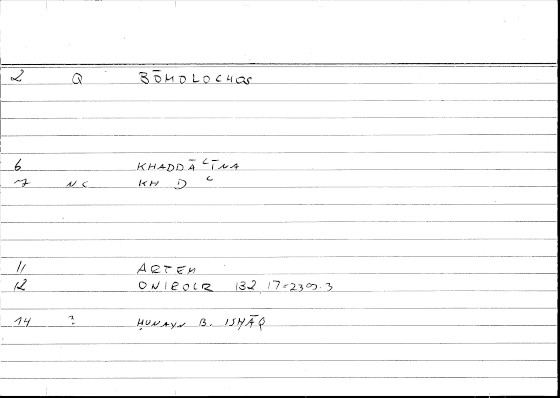 2 Q BŌMOLOCHOS
6 KHADDĀʿĪNA
7 NC KH D ʿ
11 ARTEM
12 ONIROCR 132, 17=239.3
14 ? ḤUNAYN B. ISḤĀQ